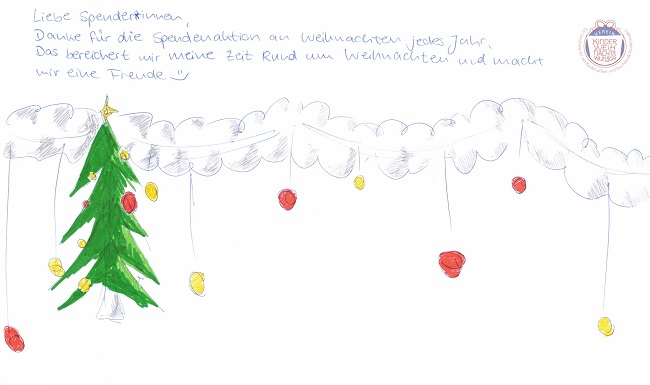 Liebe Spender*innen,
Danke für die Spendenaktion an Weihnachten jedes Jahr.
Das bereichert mir meine Zeit Rund um Weihnachten und macht
mir eine Freude
VEREIN
KINDER
WELT
TRÄGER
WUNSCH